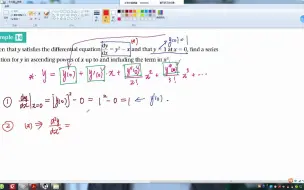 Example 14
on that y satisfies the differential equation dy/dx = y² − x and that y = 1 at x = 0, find a series
on for y in ascending powers of x up to and including the term in x³.
* y = y(0) + y'(0) · x + y''(0)/2! x² + y'''(0)/3! x³ + ⋯
① dy/dx |x=0 = [y(0)]² − 0 = 1² − 0 = 1 ← y'(0).
② (*) ⇒ d²y/dx² =